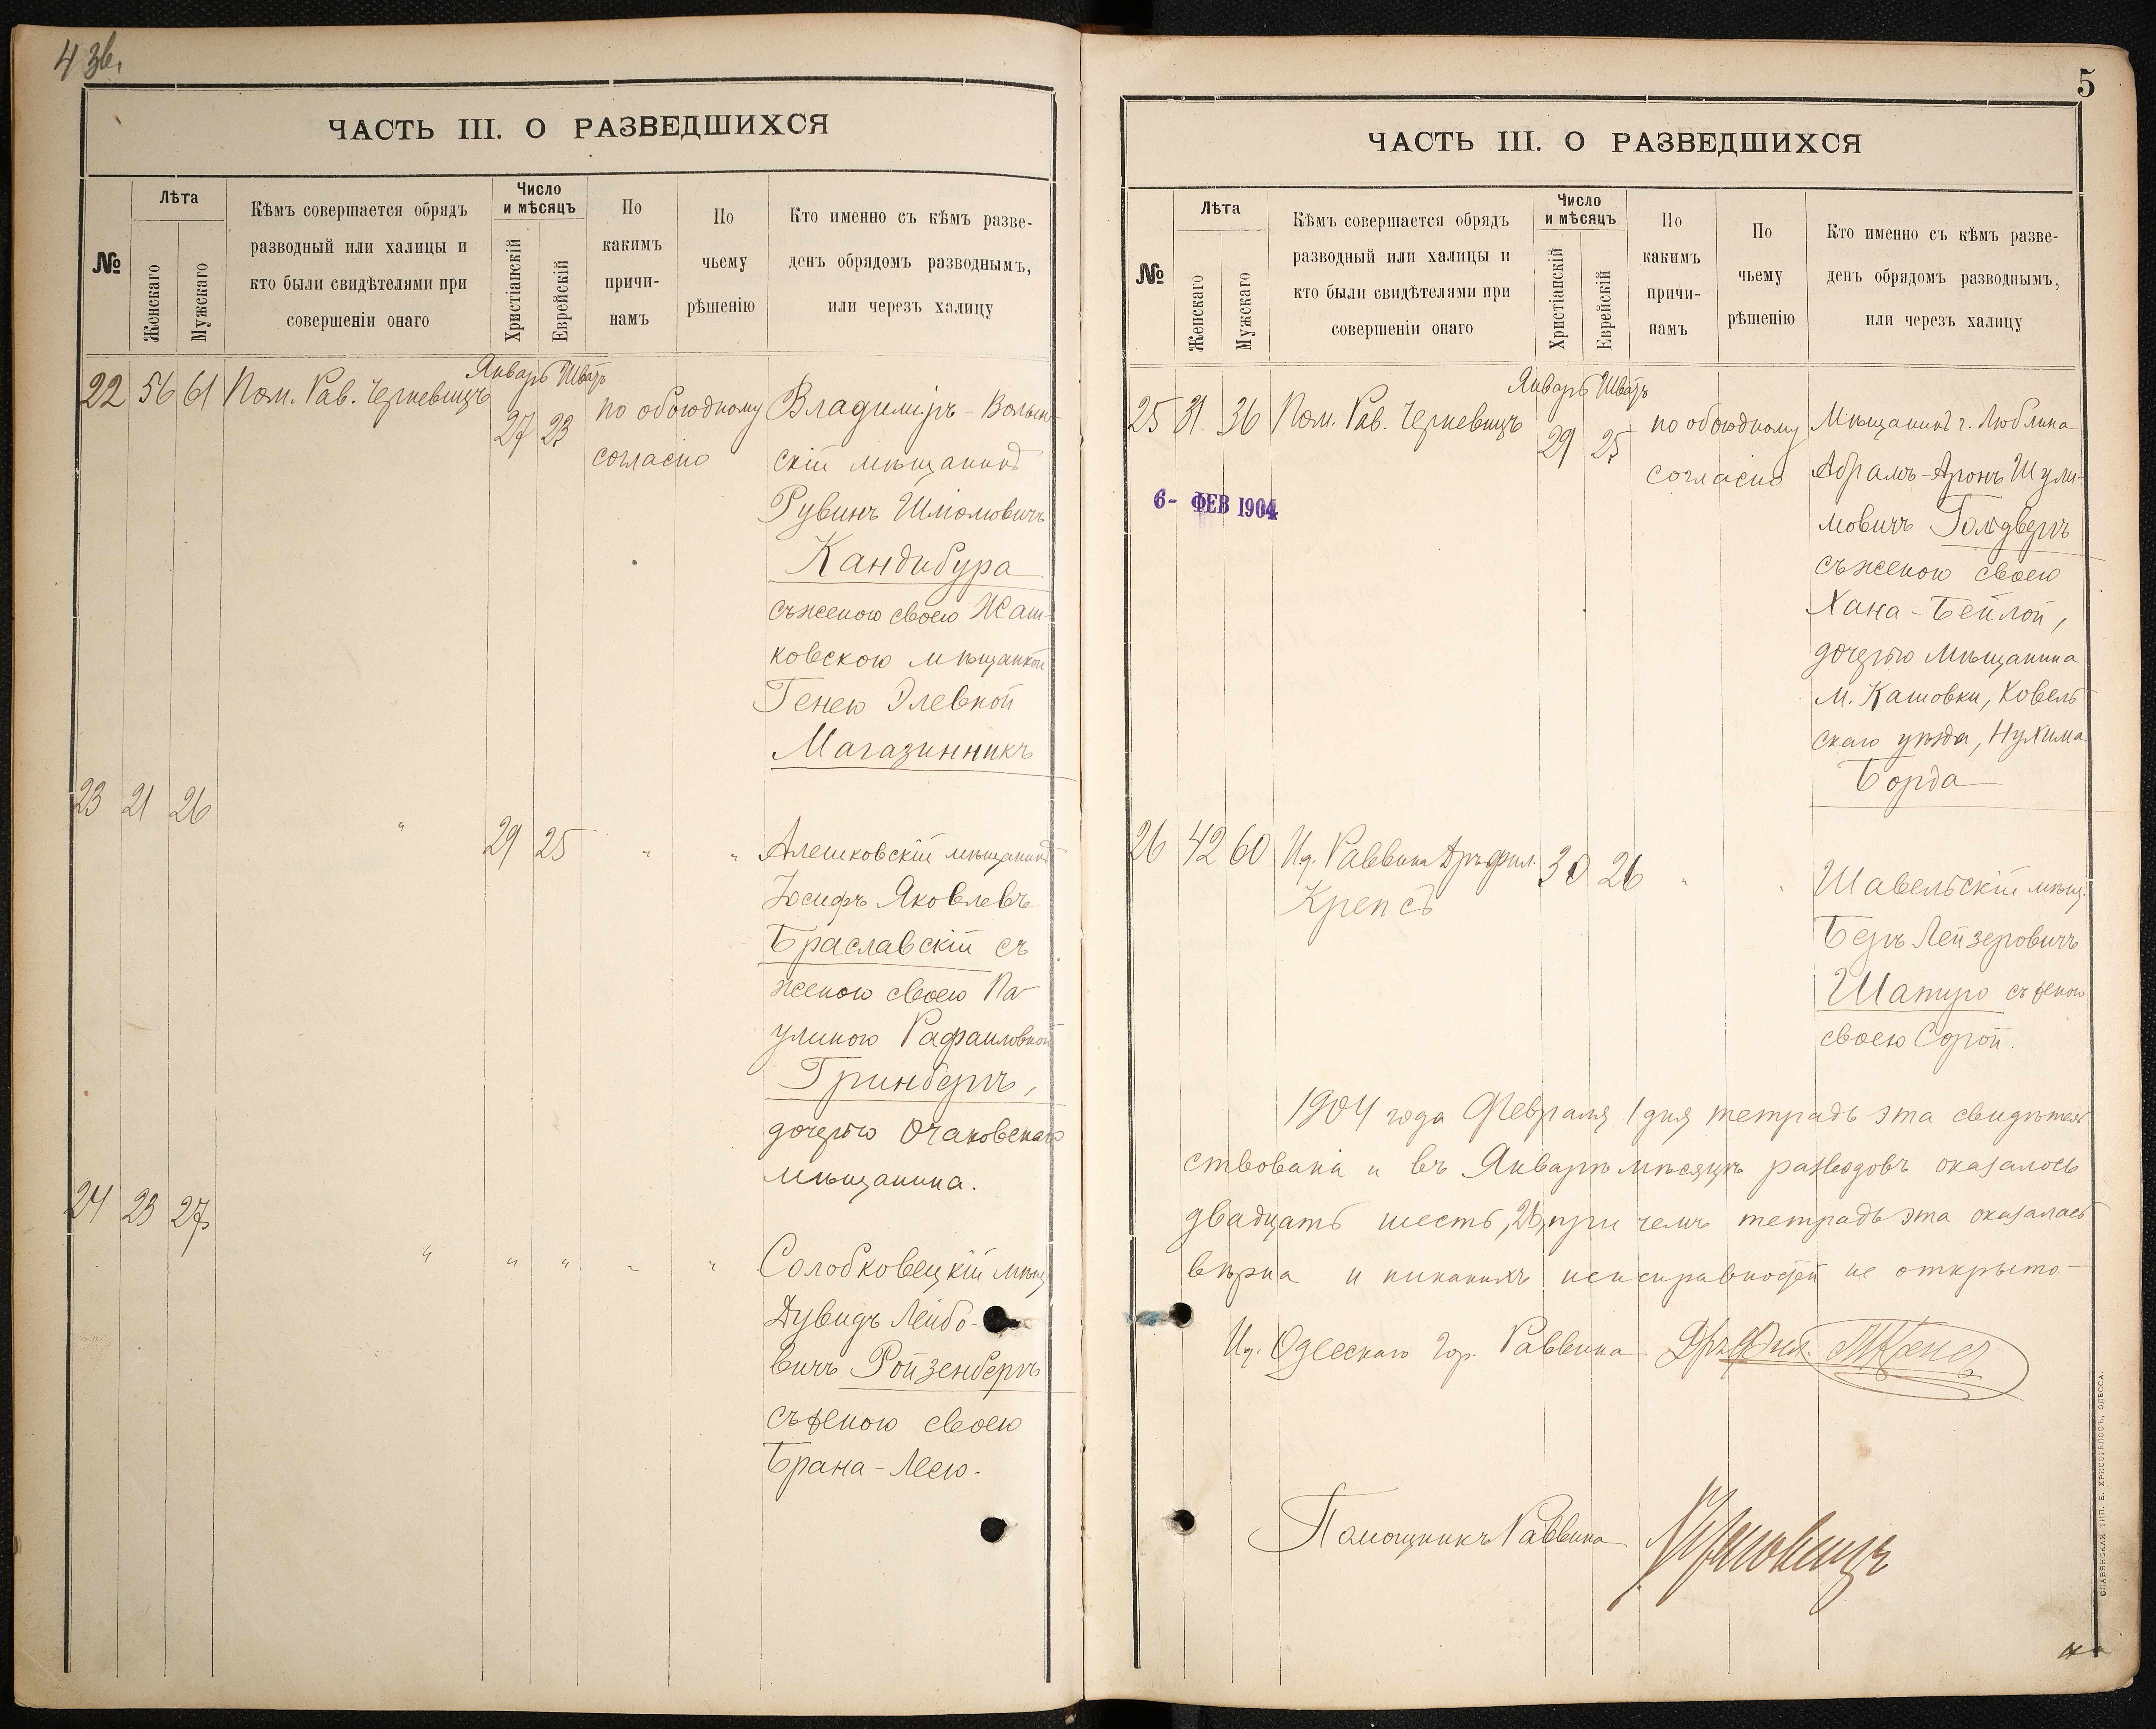 4 зв.
ЧАСТЬ III. О РАЗВЕДШИХСЯ
№
Лѣта
Женскаго
Мужскаго
Кѣмъ совершается обрядъ
разводный или халицы и
кто были свидѣтелями при
совершеніи онаго
Число
и мѣсяцъ
Христіанскій
Еврейскій
По
какимъ
причи-
намъ
По
чьему
рѣшенію
Кто именно съ кѣмъ разве-
денъ обрядомъ разводнымъ,
или черезъ халицу
Январь Шватъ
22 56 61 Пом. Рав. Черкевицъ 27 23 по обоюдному Владиміръ-Волын-
согласію скій мѣщанинъ
Рувинъ Шмоловичъ
Кандибура
съ женою своею Жаш-
ковскою мѣщанкой
Генею Элевной
Магазинникъ
23 21 26 " 29 25 " " Алешковскій мѣщанинъ
Іосифъ Яковлевъ
Браславскій съ
женою своею Па-
улиною Рафаиловной
Гринбергъ,
дочерью Очаковскаго
мѣщанина.
24 23 27 " " " " " Солобковецкій мѣщ.
Дувидъ Лейбо-
вичъ Ройзенбергъ
съ женою своею
Брана-Леею.
5
ЧАСТЬ III. О РАЗВЕДШИХСЯ
№
Лѣта
Женскаго
Мужскаго
Кѣмъ совершается обрядъ
разводный или халицы и
кто были свидѣтелями при
совершеніи онаго
Число
и мѣсяцъ
Христіанскій
Еврейскій
По
какимъ
причи-
намъ
По
чьему
рѣшенію
Кто именно съ кѣмъ разве-
денъ обрядомъ разводнымъ,
или черезъ халицу
Январь Шватъ
25 31 36 Пом. Рав. Черкевицъ 29 25 по обоюдному Мѣщанинъ г. Люблина
согласію Абрамъ-Аронъ Шули-
6- ФЕВ 1904
мовичъ Голдвергъ
съ женою своею
Хана-Бейлой,
дочерью мѣщанина
м. Кашовки, Ковель
скаго уѣзда, Нухима
Борда
26 42 60 И.д. Раввина Д-ръ фил. 30 26 " " Шавельскій мѣщ.
Крепсъ
Беръ Лейзеровичъ
Шапиро съ женою
своею Сорой.
1904 года Февраля 1 дня тетрадь эта свидѣтель
ствована и въ Январѣ мѣсяцѣ разводовъ оказалось
двадцать шесть, 26, при чемъ тетрадь эта оказалась
вѣрна и никакихъ неисправностей не открыто
И.д. Одесскаго Гор. Раввина Д-ръ Фил. Крепсъ
Помощникъ Раввина Черкевицъ
СЛАВЯНСКАЯ ТИП. Е. ХРИСОГЕЛОСЪ, ОДЕССА.